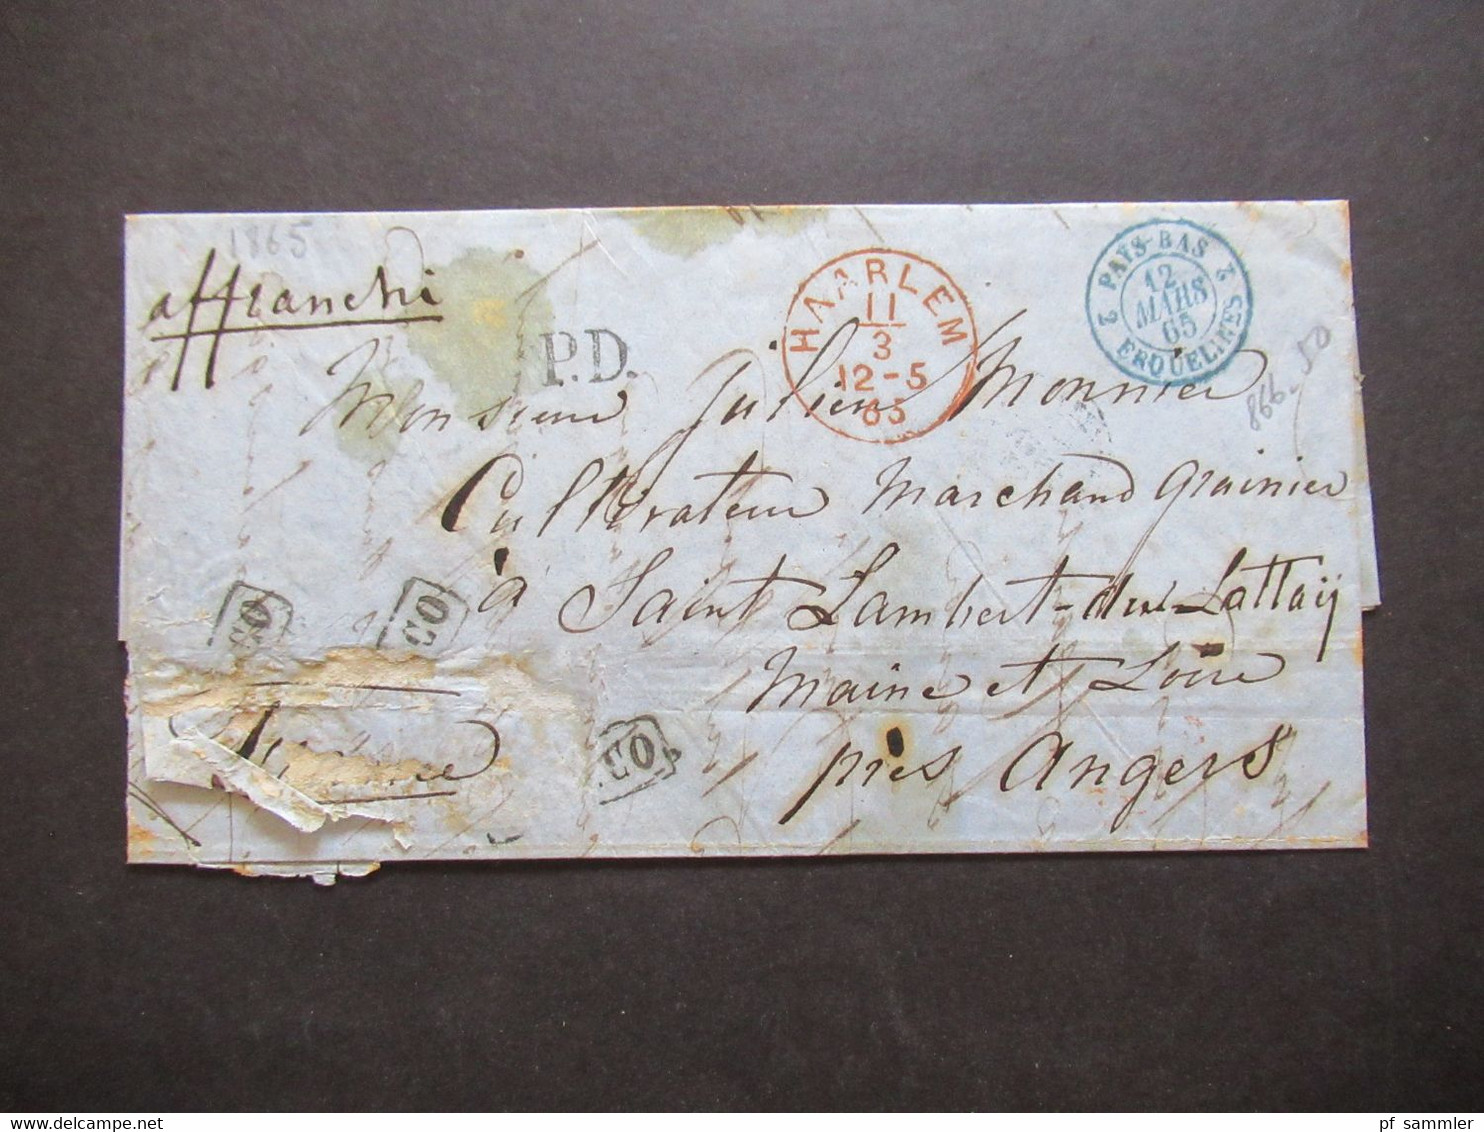 1865
affranchi
P.D.
HAARLEM
11
3
12-5
65
PAYS-BAS
2 2
12
MARS
65
ERQUELINES
866.50
Monsieur Julien Monnier
Cultivateur Marchand grainier
à Saint Lambert-du-Lattaÿ
Maine et Loire
près Angers
CO
CO
CO
pf sammler